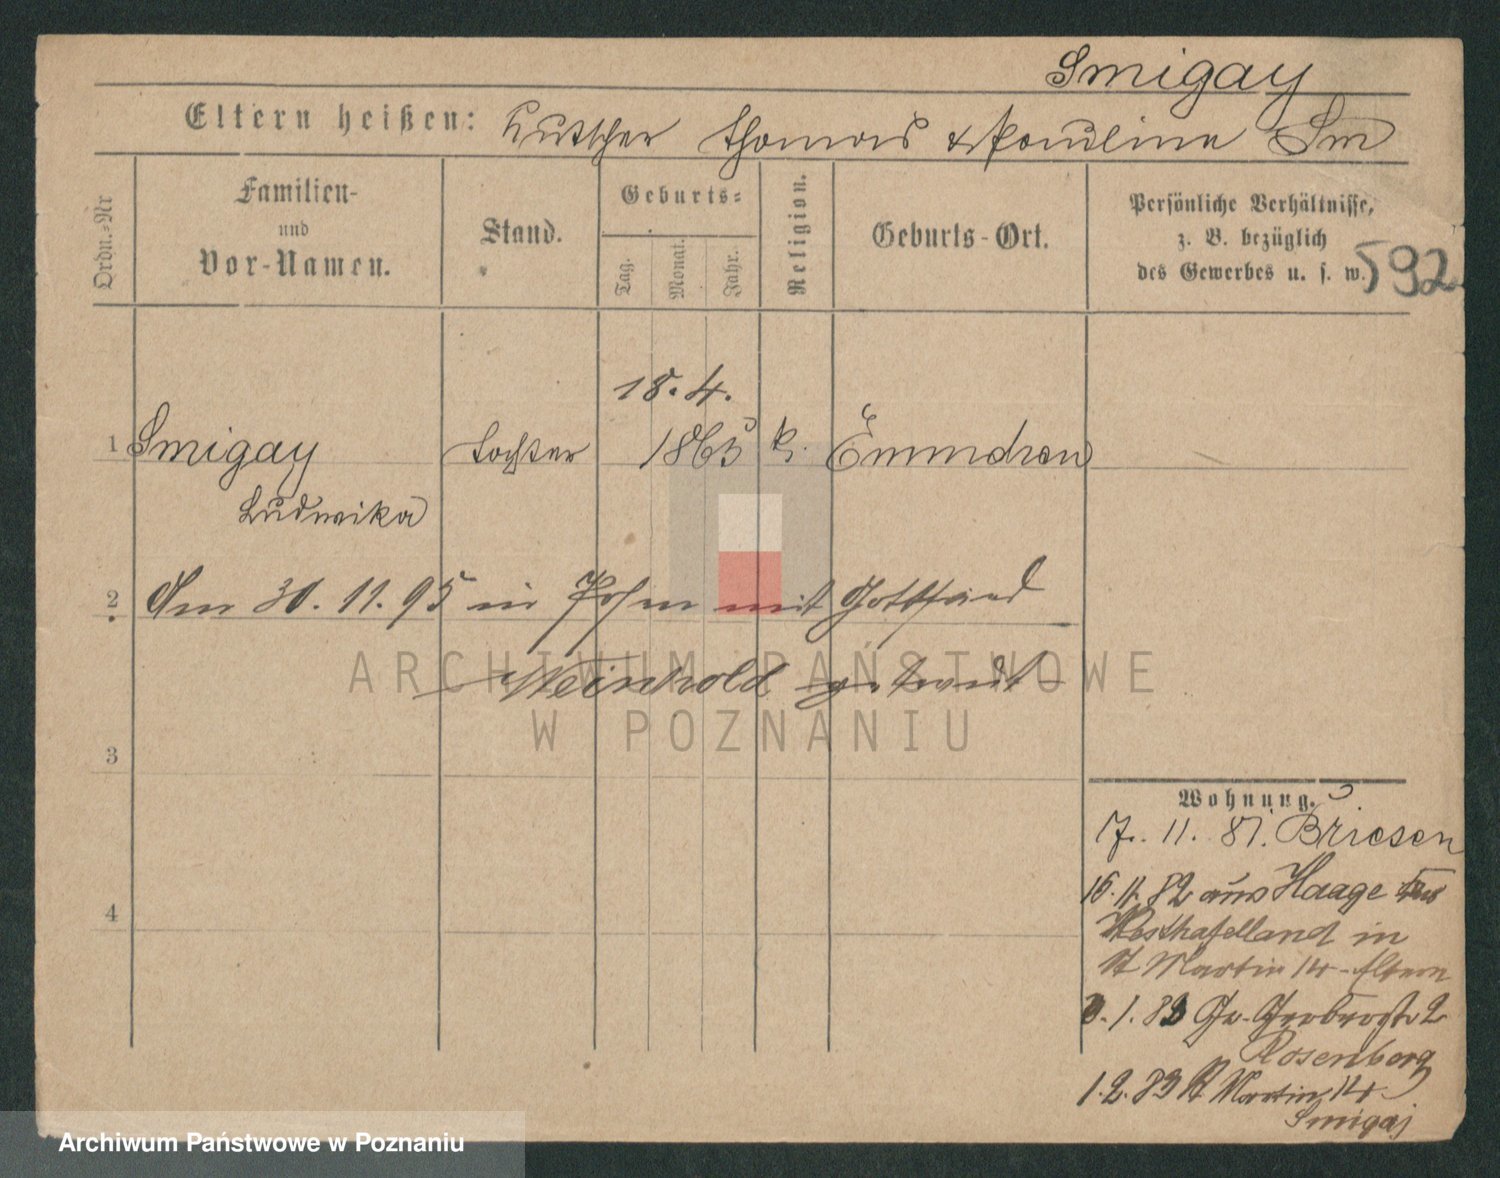 Smigay
Eltern heißen: Kutscher Thomas & Pauline Sm
Ordn.-Nr
Familien-
und
Vor-Namen.
Stand.
Geburts-
Tag.
Monat.
Jahr.
Religion.
Geburts-Ort.
Persönliche Verhältnisse,
z. B. bezüglich
des Gewerbes u. s. w.
592
18. 4.
1 Smigay Tochter 1865 k.
Ludwika
2. Am 30. 11. 95 in Posen mit Gottfried
Weinhold getraut
3
4
Wohnung.
7. 11. 81. Briesen
15. 11. 82 aus Haage
Westhafelland in
St Martin 14 - Eltern
1. 83 Gr. Gerberstr 2
Rosenberg
1. 2. 83 St Martin 14
Smigaj
ARCHIWUM PAŃSTWOWE
W POZNANIU
Archiwum Państwowe w Poznaniu